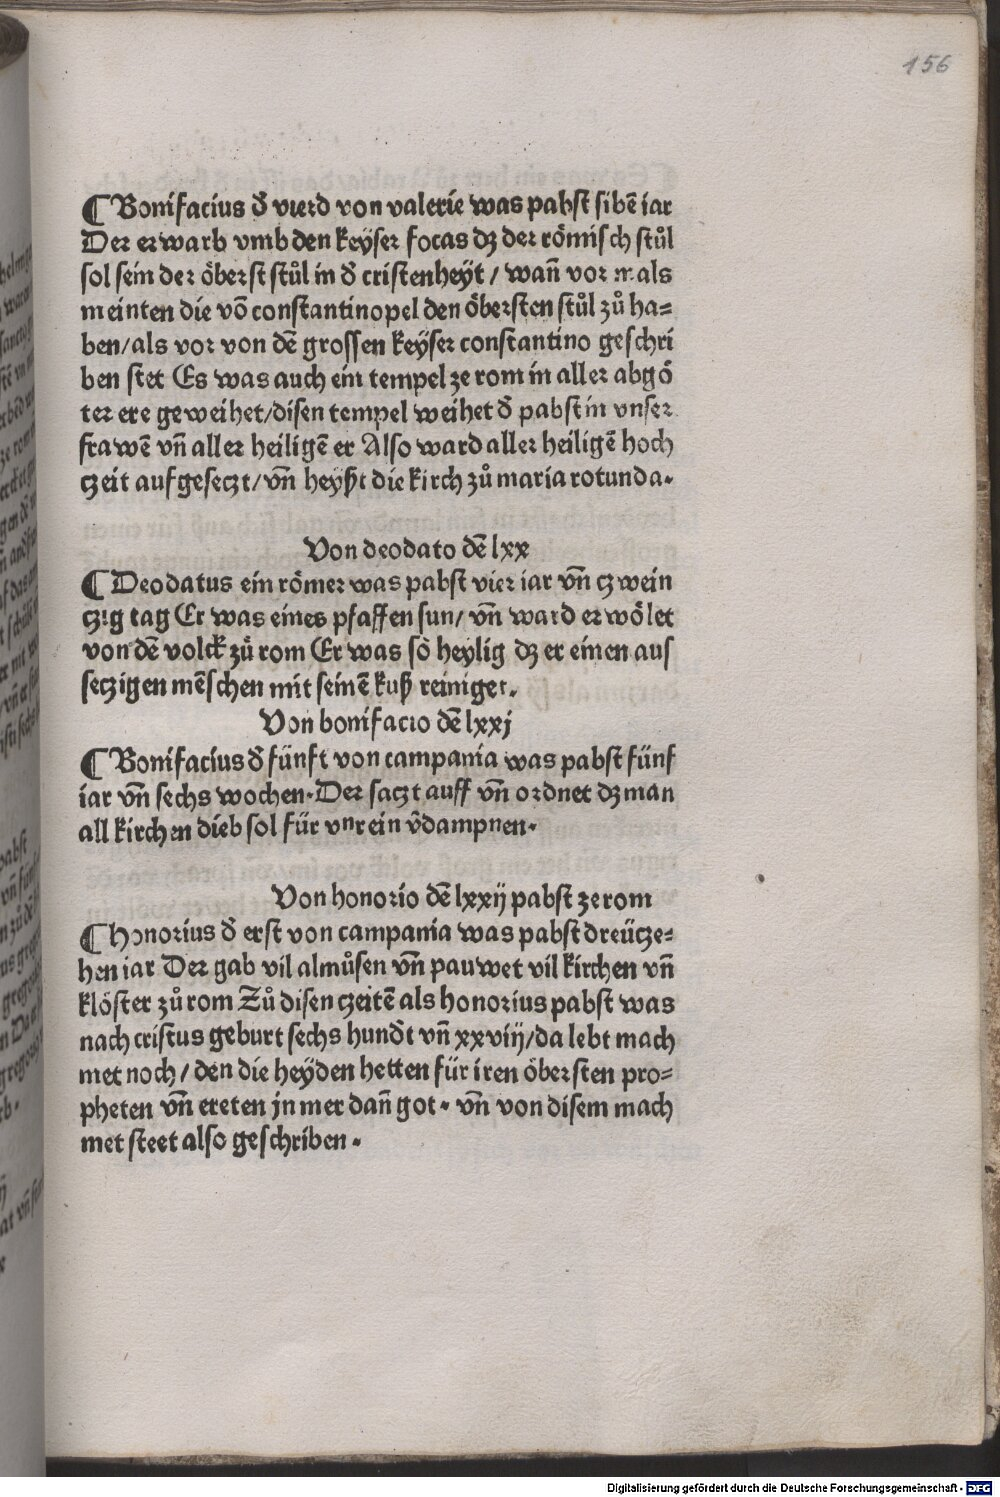 156
¶ Bonifacius d̄ vierd von valerie was pabst sibē iar
Der erwarb vmb den keyſer focas dz der römiſch ſtůl
ſol ſein der öberſt ſtůl in d̄ criſtenheÿt / wañ vor mals
meinten die vō conſtantinopel den öberſten ſtůl zů ha=
ben/als vor von dē groſſen keÿſer conſtantino geſchri
ben ſtet Es was auch ein tempel ze rom in aller abgö
ter ere geweihet/diſen tempel weihet d̄ pabſt in vnſer
frawē vñ aller heiligē er Also ward aller heiligē hoch
czeit aufgeſeczt/vñ heyßt die kirch zů maria rotunda.
Von deodato dē lxx
¶ Deodatus ein römer was pabſt vier iar vñ czwein
czig tag Er was eines pfaffen ſun/ vñ ward erwölet
von dē volck zů rom Er was ſo heylig dz er einen auſ
ſeczigen mēſchen mit ſeinē kuß reiniget.
Von bonifacio dē lxxj
¶ Bonifacius d̄ fünft von campania was pabſt fünf
iar vñ ſechs wochen.Der ſaczt auff vñ ordnet dz man
all kirchen dieb ſol für vnrein v̄dampnen.
Von honorio dē lxxij pabſt ze rom
¶ Honorius d̄ erſt von campania was pabſt dreücze=
hen iar Der gab vil almůſen vñ pauwet vil kirchen vñ
klöſter zů rom Zů diſen czeitē als honorius pabſt was
nach criſtus geburt ſechs hundt̄ vñ xxviij/da lebt mach
met noch/ den die heÿden hetten für iren öberſten pro=
pheten vñ ereten jn mer dañ got. vñ von diſem mach
met ſteet alſo geſchriben.
Digitalisierung gefördert durch die Deutsche Forschungsgemeinschaft - DFG